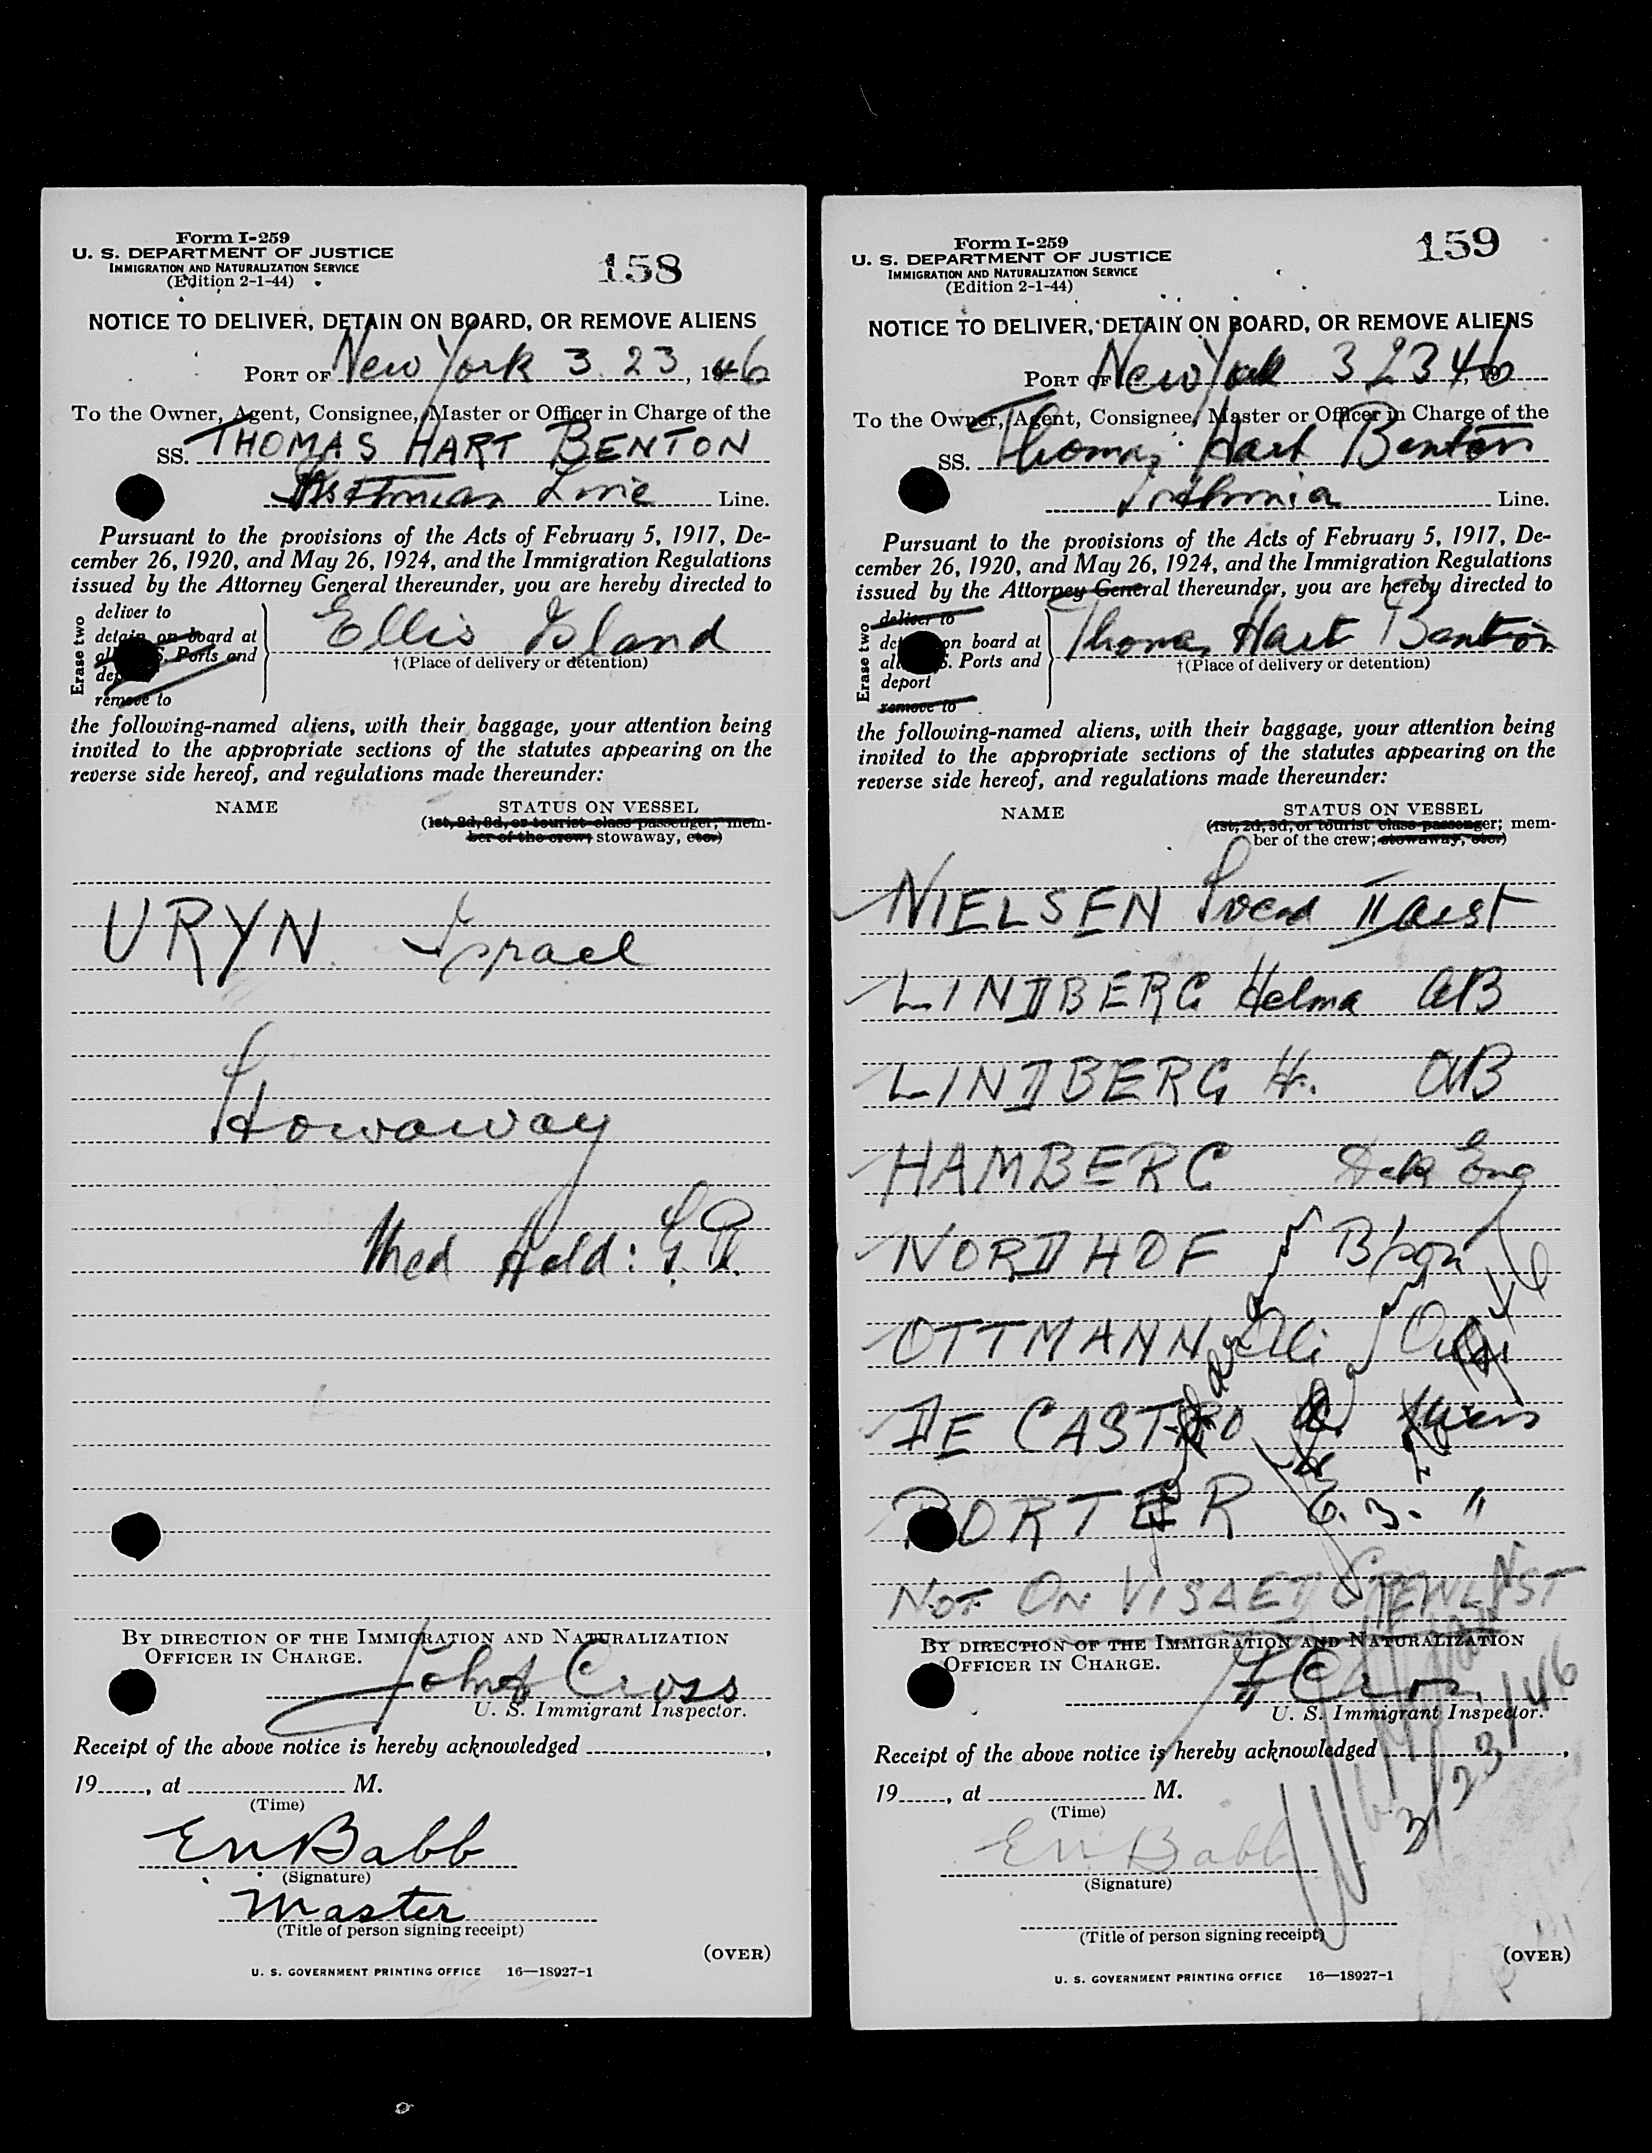 Form I-259
U. S. DEPARTMENT OF JUSTICE
IMMIGRATION AND NATURALIZATION SERVICE
(Edition 2-1-44)
158
NOTICE TO DELIVER, DETAIN ON BOARD, OR REMOVE ALIENS
PORT OF New York 3. 23, 1946
To the Owner, Agent, Consignee, Master or Officer in Charge of the
SS. THOMAS HART BENTON
Line.
Pursuant to the provisions of the Acts of February 5, 1917, De-
cember 26, 1920, and May 26, 1924, and the Immigration Regulations
issued by the Attorney General thereunder, you are hereby directed to
Erase two
deliver to
detain on board at
all S. Ports and
remove to
Ellis Island
†(Place of delivery or detention)
the following-named aliens, with their baggage, your attention being
invited to the appropriate sections of the statutes appearing on the
reverse side hereof, and regulations made thereunder:
NAME STATUS ON VESSEL
(1st, 2d, 3d, or tourist class passenger; mem-
ber of the crew; stowaway, etc.)
URYN Israel
Stowaway
Med Held:
BY DIRECTION OF THE IMMIGRATION AND NATURALIZATION
OFFICER IN CHARGE.
John Cross
U. S. Immigrant Inspector.
Receipt of the above notice is hereby acknowledged ,
19 , at M.
(Time)
En Babb
(Signature)
Master
(Title of person signing receipt)
(OVER)
U. S. GOVERNMENT PRINTING OFFICE 16—18927-1
Form I-259
U. S. DEPARTMENT OF JUSTICE
IMMIGRATION AND NATURALIZATION SERVICE
(Edition 2-1-44)
159
NOTICE TO DELIVER, DETAIN ON BOARD, OR REMOVE ALIENS
PORT OF New York 3 23 46, 19
To the Owner, Agent, Consignee, Master or Officer in Charge of the
SS. Thomas Hart Benton
Isthmia Line.
Pursuant to the provisions of the Acts of February 5, 1917, De-
cember 26, 1920, and May 26, 1924, and the Immigration Regulations
issued by the Attorney General thereunder, you are hereby directed to
Erase two
deliver to
on board at
S. Ports and
deport
remove to
Thomas Hart Benton
†(Place of delivery or detention)
the following-named aliens, with their baggage, your attention being
invited to the appropriate sections of the statutes appearing on the
reverse side hereof, and regulations made thereunder:
NAME STATUS ON VESSEL
(1st, 2d, 3d, or tourist class passenger; mem-
ber of the crew; stowaway, etc.)
NIELSEN Svend II asst
LINDBERG Helma AB
LINDBERG H. AB
HAMBERG Deck Eng
NORDHOF
OTTMANN
DE CASTRO
PORTER "
NOT ON VISAED CREWLIST
BY DIRECTION OF THE IMMIGRATION AND NATURALIZATION
OFFICER IN CHARGE.
U. S. Immigrant Inspector.
3/23/46
Receipt of the above notice is hereby acknowledged ,
19 , at M.
(Time)
En Babb
(Signature)
(Title of person signing receipt)
(OVER)
U. S. GOVERNMENT PRINTING OFFICE 16—18927-1